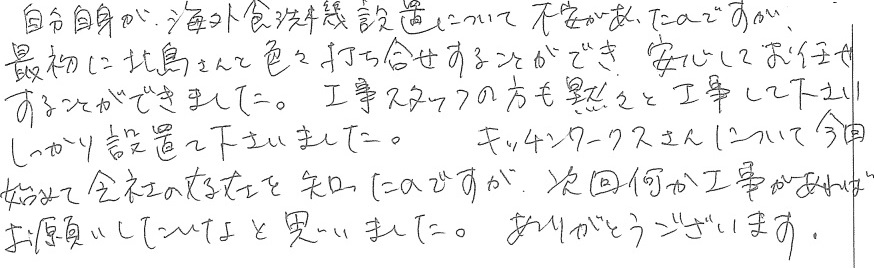 自分自身が、海外食洗機設置について不安があったのですが、
最初に北島さんと色々打ち合せすることができ、安心してお任せ
することができました。工事スタッフの方も黙々と工事して下さい
しっかり設置て下さいました。 キッチンワークスさんについて今回
始めて会社の存在を知ったのですが、次回何か工事があれば
お願いしたいなと思いました。ありがとうございます。